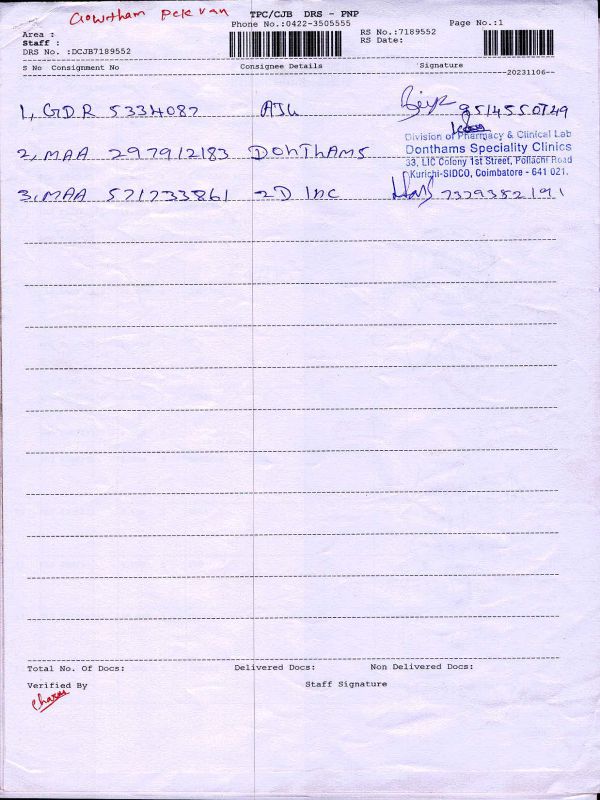 Gowtham Pck Van
TPC/CJB DRS - PNP
Phone No.:0422-3505555
Page No.:1
Area :
RS No.:7189552
Staff :
RS Date:
DRS No. :DCJB7189552
S No Consignment No Consignee Details Signature
20231106
1, GDR 5334087 AJU 9514550749
2, MAA 297912183 DONTHAMS
Division of Pharmacy & Clinical Lab
Donthams Speciality Clinics
33, LIC Colony 1st Street, Pollachi Road
Kurichi-SIDCO, Coimbatore - 641 021.
3, MAA 571733861 2D INC 7373352191
Total No. Of Docs: Delivered Docs: Non Delivered Docs:
Verified By Staff Signature